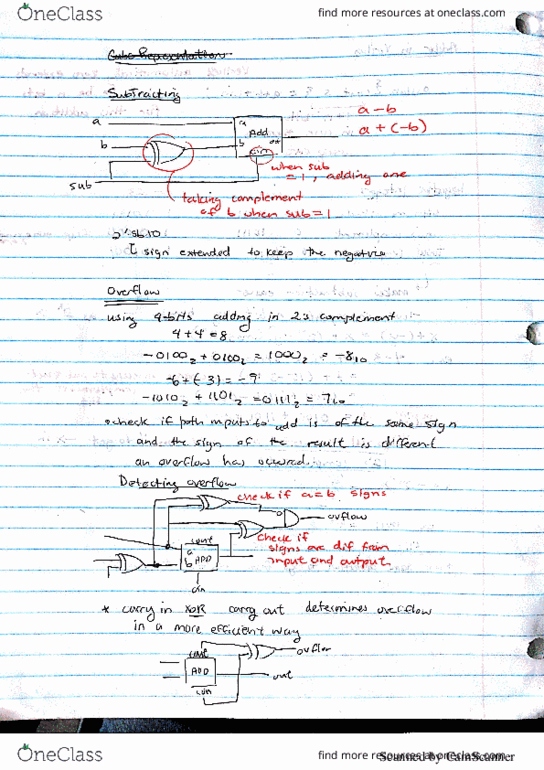 OneClass
find more resources at oneclass.com
Cube Representation
Subtracting
a
b
sub
a
b
Add
out
cin
a-b
a + (-b)
when sub
= 1, adding one
taking complement
of b when sub=1
sign extended to keep the negative
Overflow
using 4-bits adding in 2s complement
4+4=8
-0100₂ + 0100₂ = 1000₂ = -8₁₀
-6+(-3)=-9
-1010₂ + 1101₂ = 0111₂ = 7₁₀
•check if both inputs to add is of the same sign
and the sign of the result is different
an overflow has occured.
Detecting overflow
check if a=b signs
ovflow
check if
signs are dif from
input and output
cout
a
b ADD
cin
* carry in XOR carry out determines overflow
in a more efficient way
cout
ovflow
ADD
out
cin
OneClass
find more resources at oneclass.com
Scanned by CamScanner